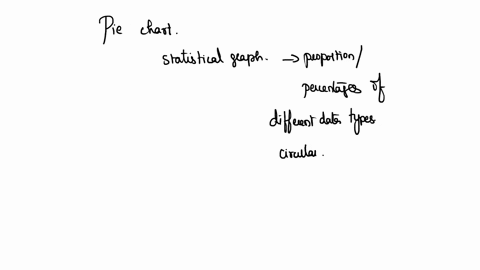 Pie chart.
statistical graph. → proportion/
percentages of
different data types
circular.